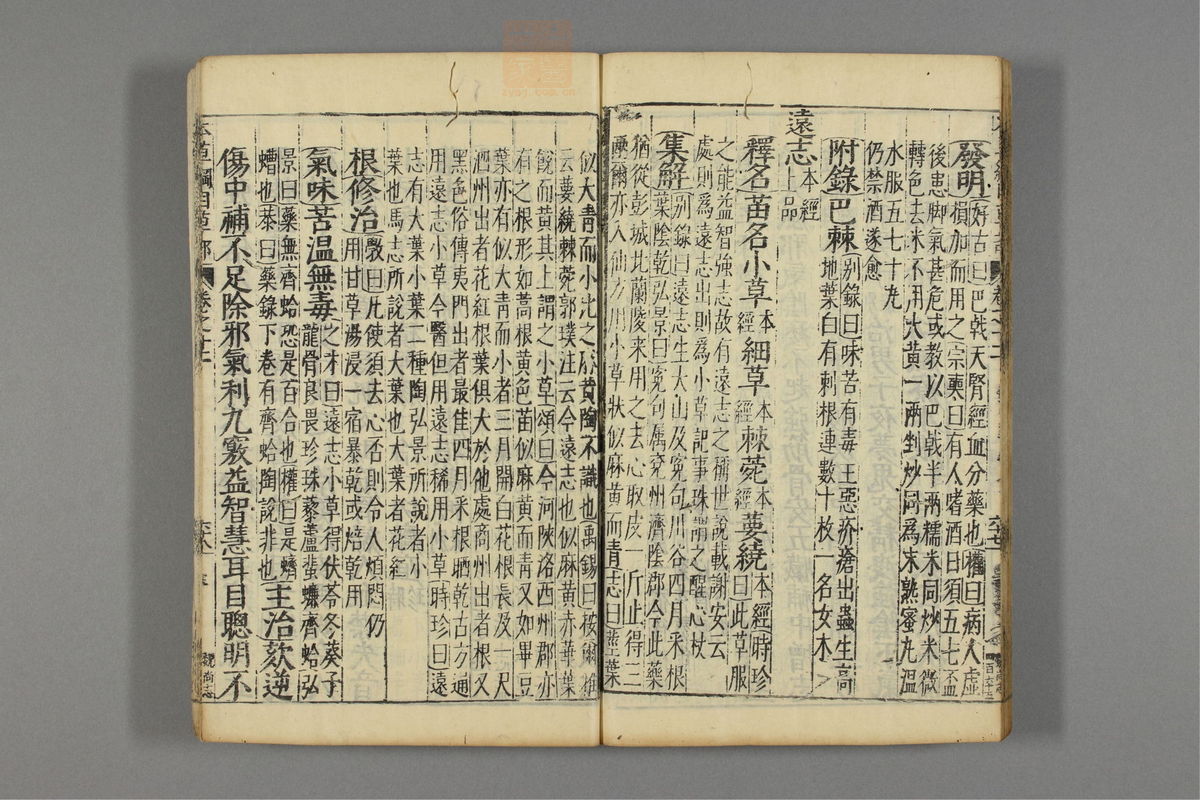 發明好古曰巴戟天腎經血分藥也權曰病人虛
損加而用之宗奭曰有人嗜酒日須五七盃
後患脚氣甚危或教以巴戟半兩糯米同炒米微
轉色去米不用大黃一兩剉炒同為末熟蜜丸溫
水服五七十丸
仍禁酒遂愈
附錄巴棘別錄曰味苦有毒主惡疥瘡出蟲生高
地葉白有刺根連數十枚一名女木
遠志本經上品
釋名苗名小草本經細草本經棘菀本經葽繞本經時珍
曰此草服
之能益智強志故有遠志之稱世說載謝安云
處則為遠志出則為小草記事珠謂之醒心杖
集解別錄曰遠志生太山及冤句川谷四月釆根
葉陰乾弘景曰冤句属兗州濟陰郡今此藥
猶從彭城北蘭陵来用之去心取皮一斤止得三
兩爾亦入仙方用小草狀似麻黃而青志曰莖葉
似大青而小比之麻黃陶不識也禹錫曰按爾雅
云葽繞棘菀郭璞注云今遠志也似麻黃赤華葉
銳而黃其上謂之小草頌曰今河陝洛西州郡亦
有之根形如蒿根黃色苗似麻黃而青又如畢豆
葉亦有似大青而小者三月開白花根長及一尺
泗州出者花紅根葉俱大於他處商州出者根又
黑色俗傳夷門出者最佳四月釆根晒乾古方通
用遠志小草今醫但用遠志稀用小草時珍曰遠
志有大葉小葉二種陶弘景所說者小
葉也馬志所說者大葉也大葉者花紅
根修治斅曰凡使須去心否則令人煩悶仍
用甘草湯浸一宿暴乾或焙乾用
氣味苦溫無毒之才曰遠志小草得伏苓冬葵子
龍骨良畏珍珠藜蘆蜚蠊齊蛤弘
景曰藥無齊蛤恐是百合也權曰是蠐
螬也恭曰藥錄下卷有齊蛤陶說非也主治欬逆
傷中補不足除邪氣利九竅益智慧耳目聰明不
本草綱目草部 卷之十二